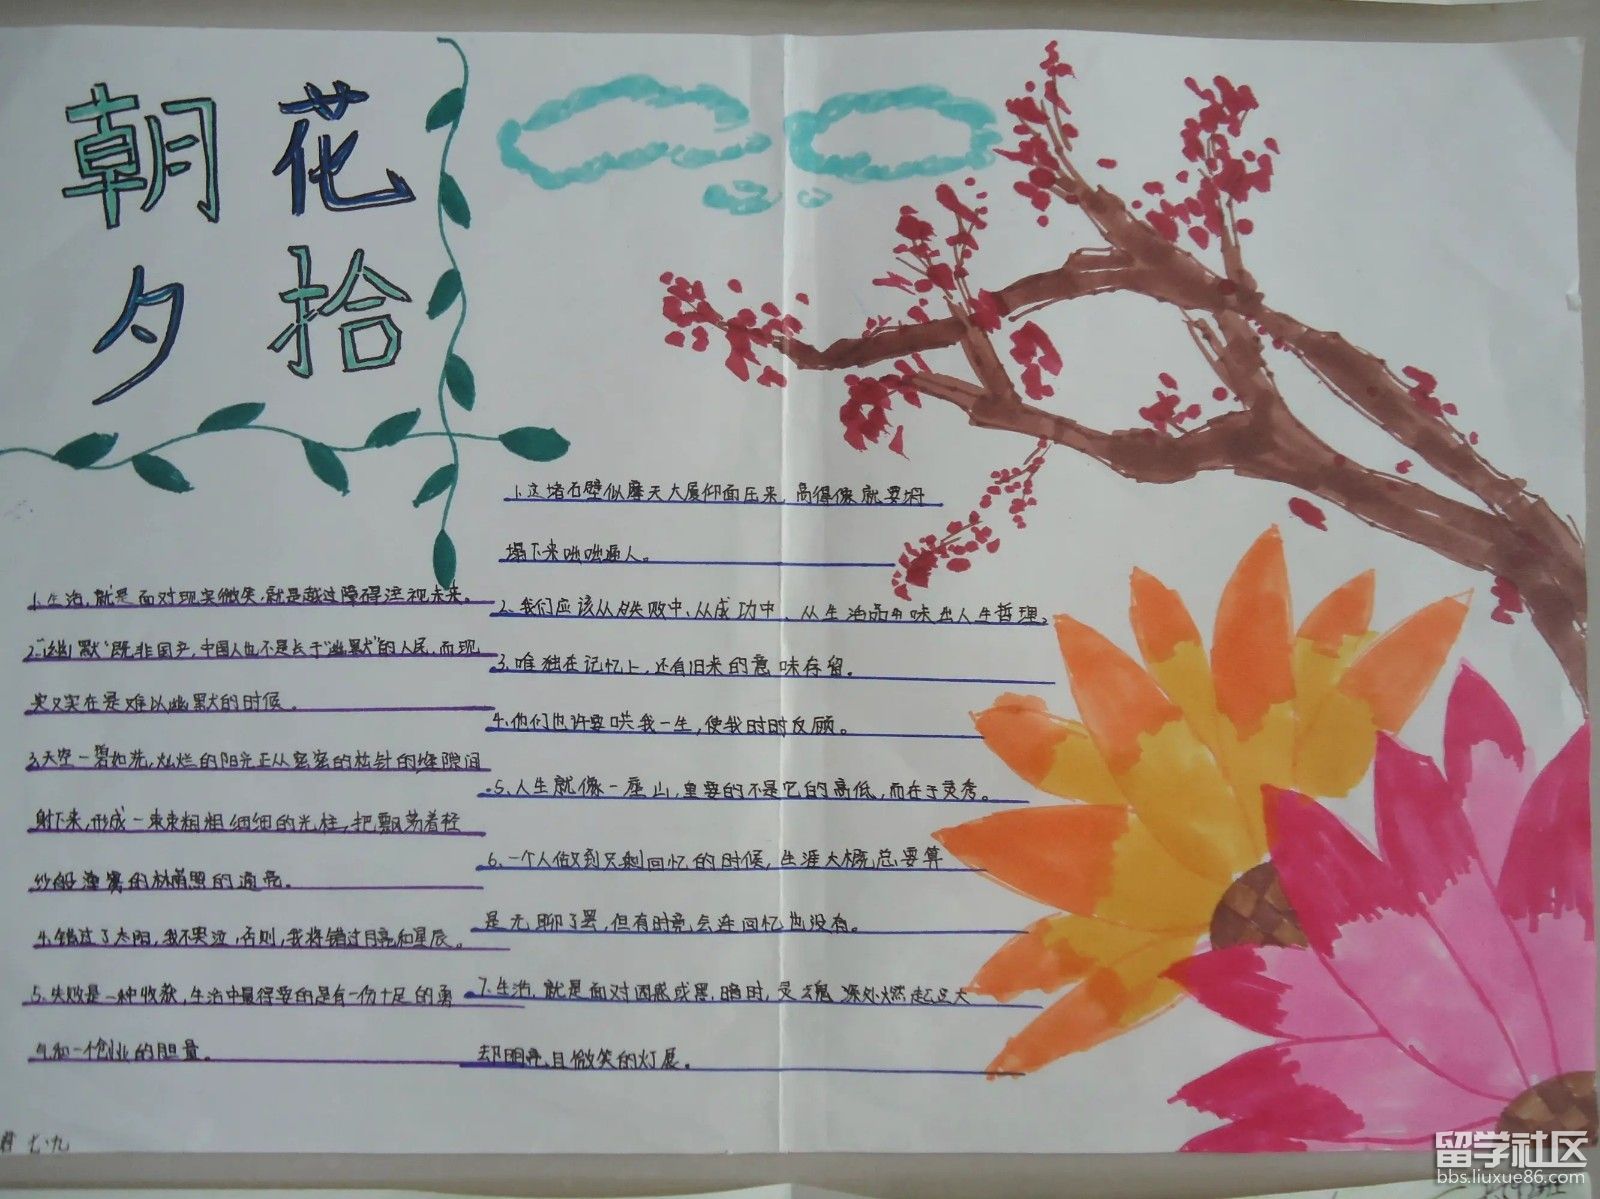 朝花
夕拾
1.生活,就是面对现实微笑,就是越过障碍注视未来。
2."幽默"既非国产,中国人也不是长于"幽默"的人民,而现
实又实在是难以幽默的时候。
3.天空一碧如洗,灿烂的阳光正从密密的松针的缝隙间
射下来,形成一束束粗粗细细的光柱,把飘荡着轻
纱般薄雾的林荫照的通亮。
4.错过了太阳,我不哭泣,否则,我将错过月亮和星辰。
5.失败是一种收获,生活中最得要的是有一份十足的勇
气和一个创业的胆量。
1.这堵石壁似摩天大厦仰面压来,高得像就要坍
塌下来咄咄逼人。
2.我们应该从失败中、从成功中、从生活品味出人生哲理。
3.唯独在记忆上,还有旧来的意味存留。
4.他们也许要哄我一生,使我时时反顾。
5.人生就像一座山,重要的不是它的高低,而在于灵秀。
6.一个人做到只剩回忆的时候,生涯大概总要算
是无聊了罢,但有时竟会连回忆也没有。
7.生活,就是面对困惑或黑暗时,灵魂深处燃起这大
却明亮且微笑的灯展。
七.九
留学社区
bbs.liuxue86.com